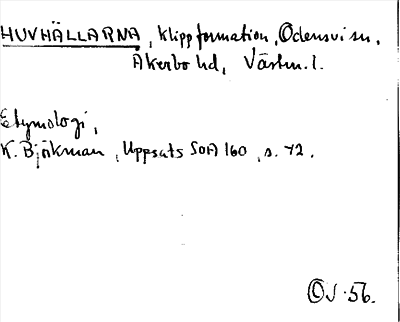 HUVHÄLLARNA, klippformation, Odensvi sn,
Åkerbo hd, Västm. l.
Etymologi,
K. Björkman, Uppsats SOA 160, s. 72.
OJ. 56.